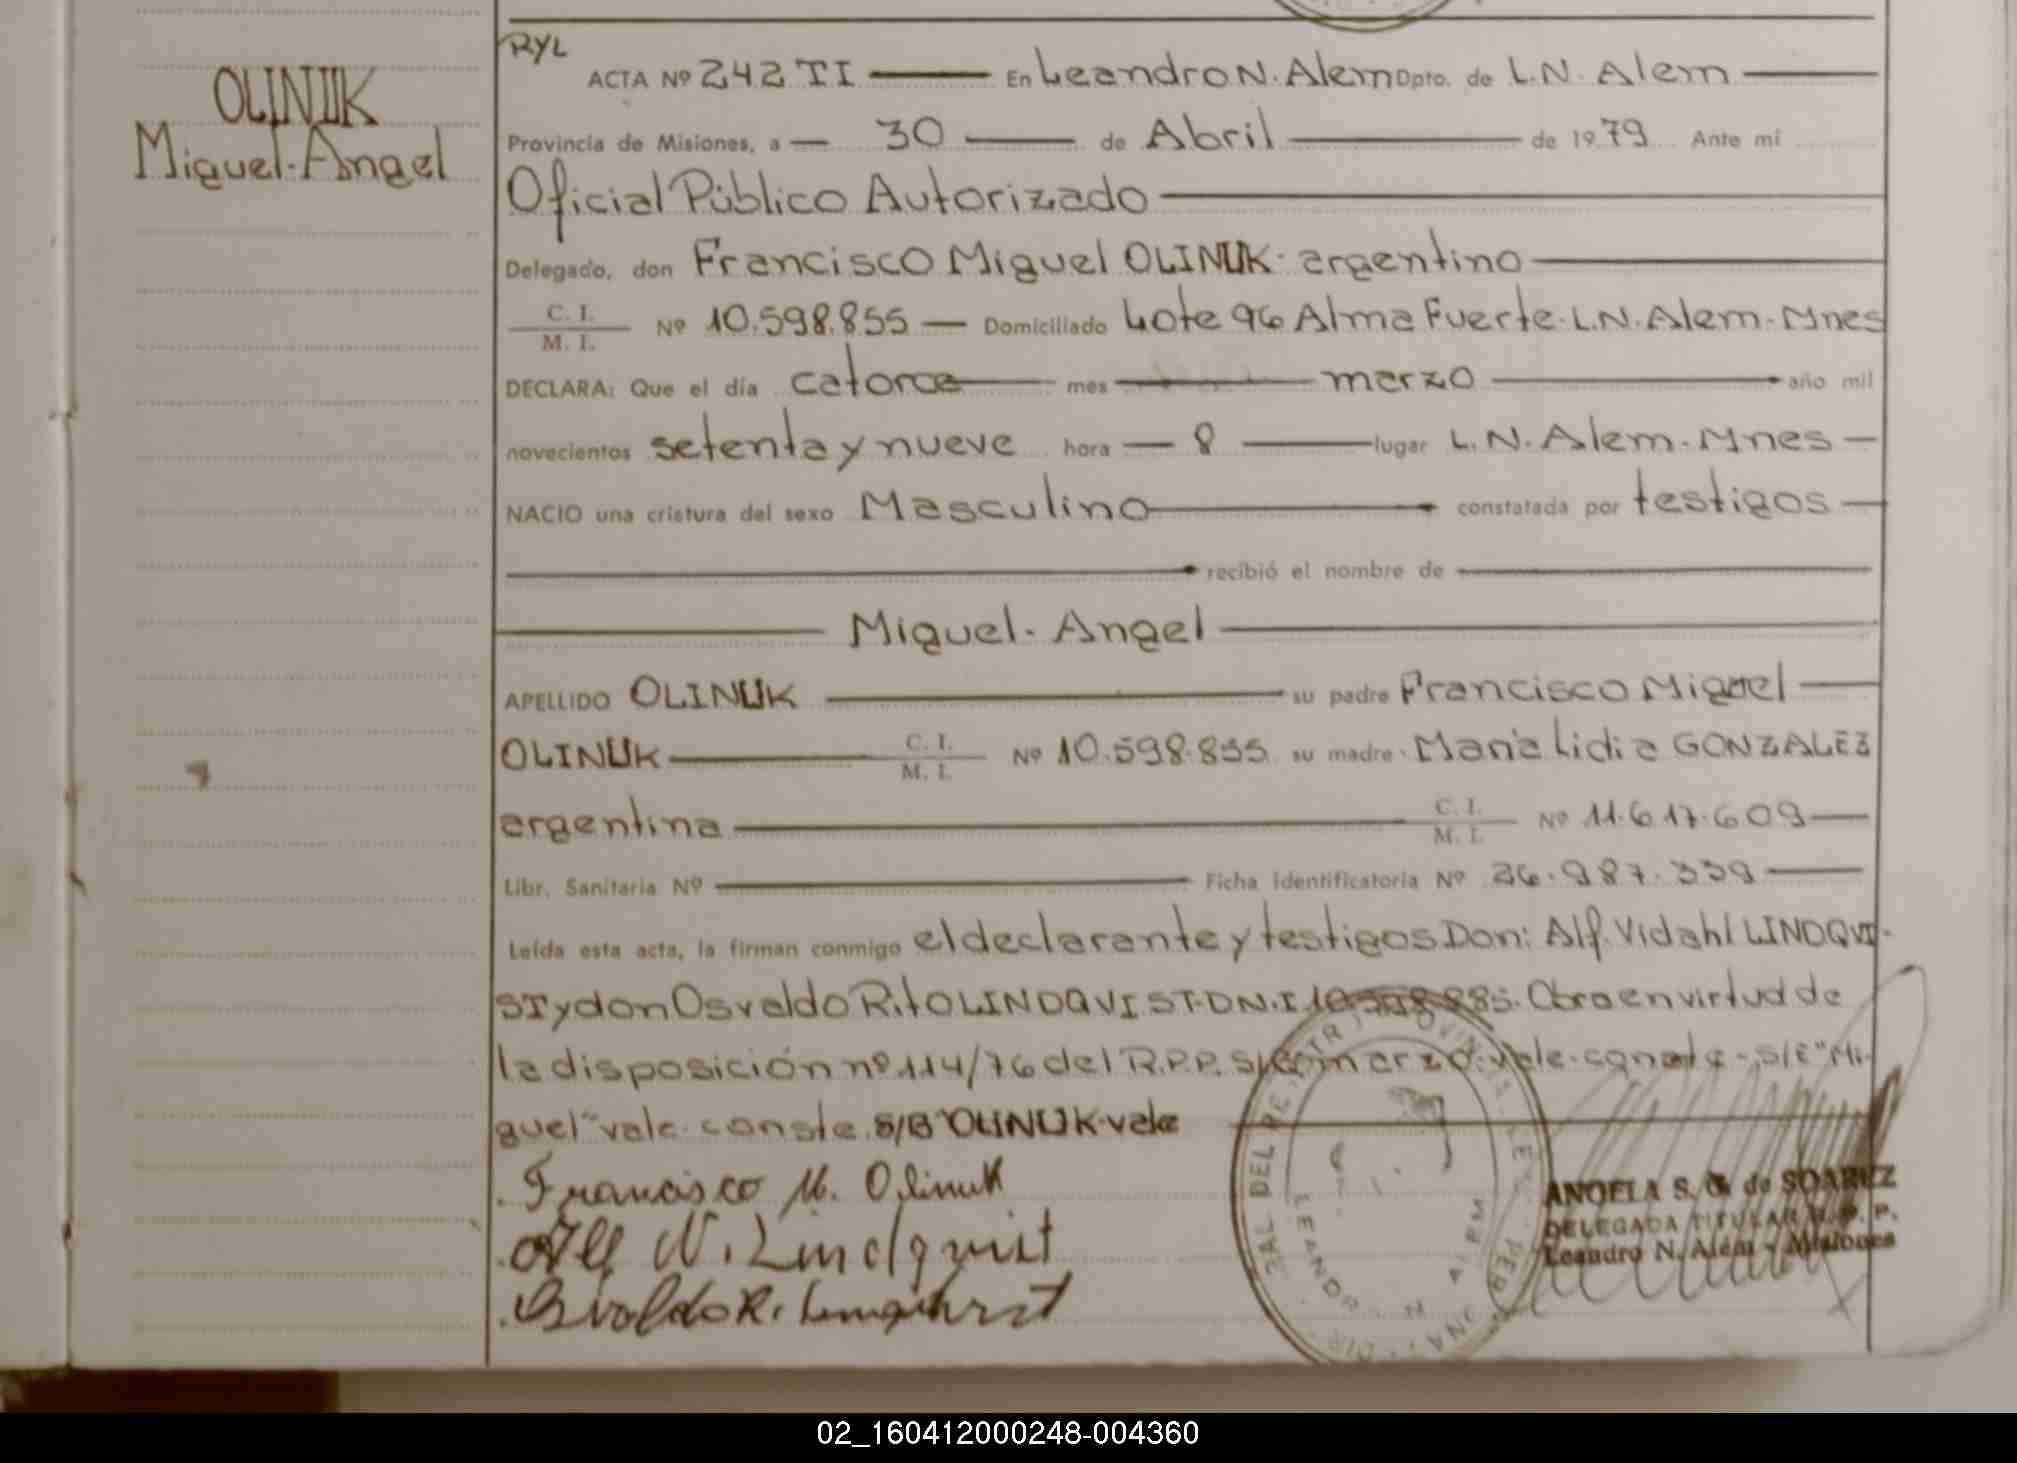 OLINUK
Miguel-Angel
RYL
ACTA Nº 242 TI En Leandro N. Alem Dpto. de L.N. Alem
Provincia de Misiones, a 30 de Abril de 1979 Ante mí
Oficial Público Autorizado
Delegado, don Francisco Miguel OLINUK - argentino
C. I. / M. I. Nº 10.598.855 Domiciliado Lote 96 Alma Fuerte-L.N. Alem-Mnes
DECLARA: Que el día catorce mes marzo año mil
novecientos setenta y nueve hora 8 lugar L.N. Alem-Mnes
NACIO una criatura del sexo Masculino constatada por testigos
recibió el nombre de
Miguel-Angel
APELLIDO OLINUK su padre Francisco Miguel
OLINUK C. I. / M. I. Nº 10.598.855 su madre Maria Lidia GONZALEZ
argentina C. I. / M. I. Nº 11.617.609
Libr. Sanitaria Nº Ficha identificatoria Nº 26.987.339
Leída esta acta, la firman conmigo el declarante y testigos Don: Alf. Vidahl LINDQVI-
ST y don Osvaldo Rito LINDQVIST-D.N.I. Obra en virtud de
la disposición nº 114/76 del R.P.P. marzo-vale-conste-, S/E "Mi-
guel" vale-conste. S/B "OLINUK-vale
Francisco M. Olinuk
Alf V. Lindqvist
Osvaldo R. Lindqvist
ANGELA S. G. de SOAREZ
DELEGADA TITULAR R. P. P.
Leandro N. Alem - Misiones
02_160412000248-004360